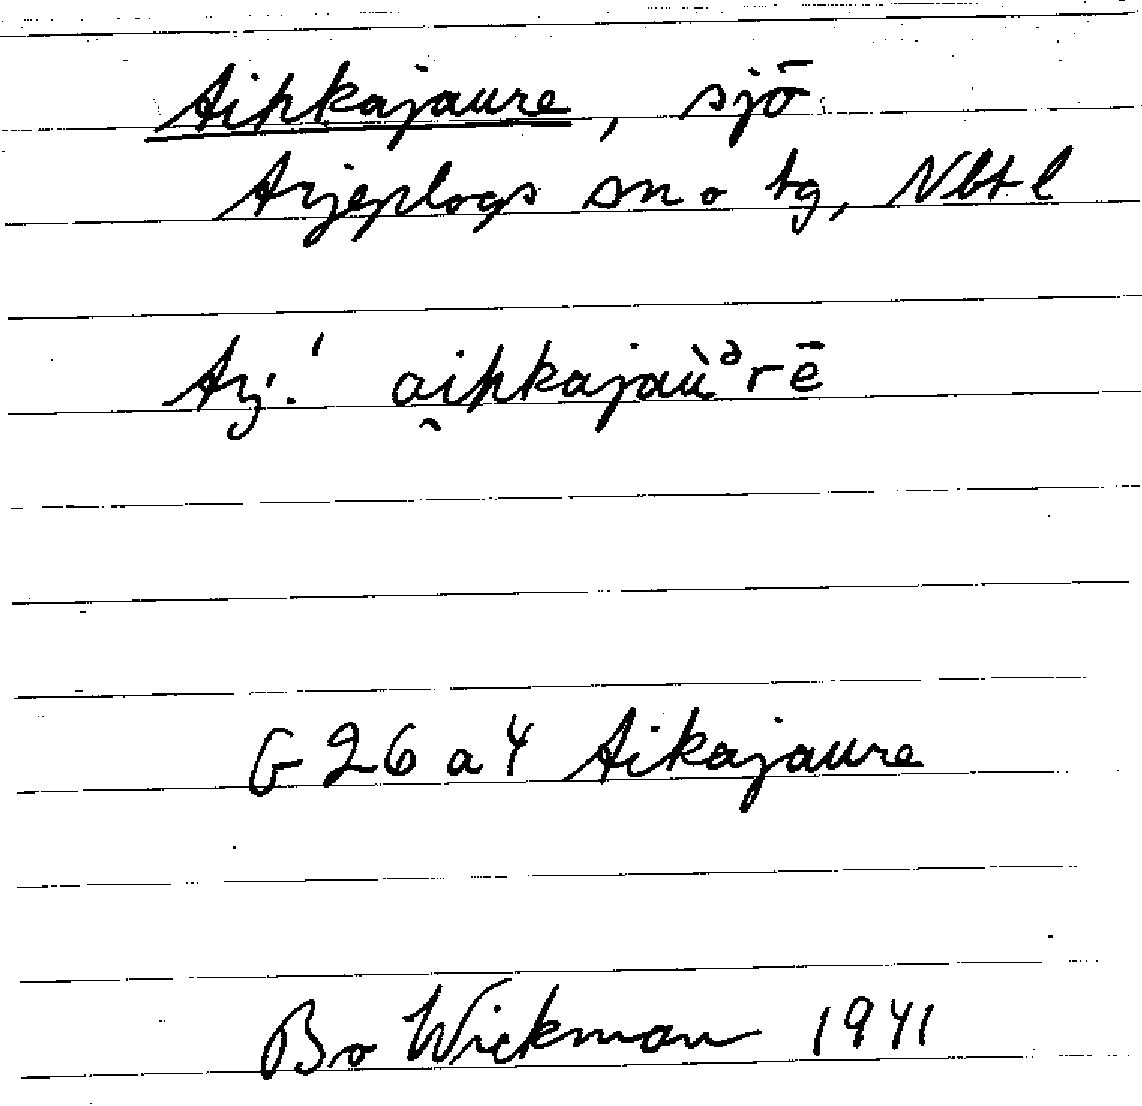 Aihkajaure, sjö
Arjeplogs sn o tg, Nbtl
Arj.' a̯ihkajau̇̀ᵊrē
G 26 a 4 Aikajaure
Bo Wickman 1941